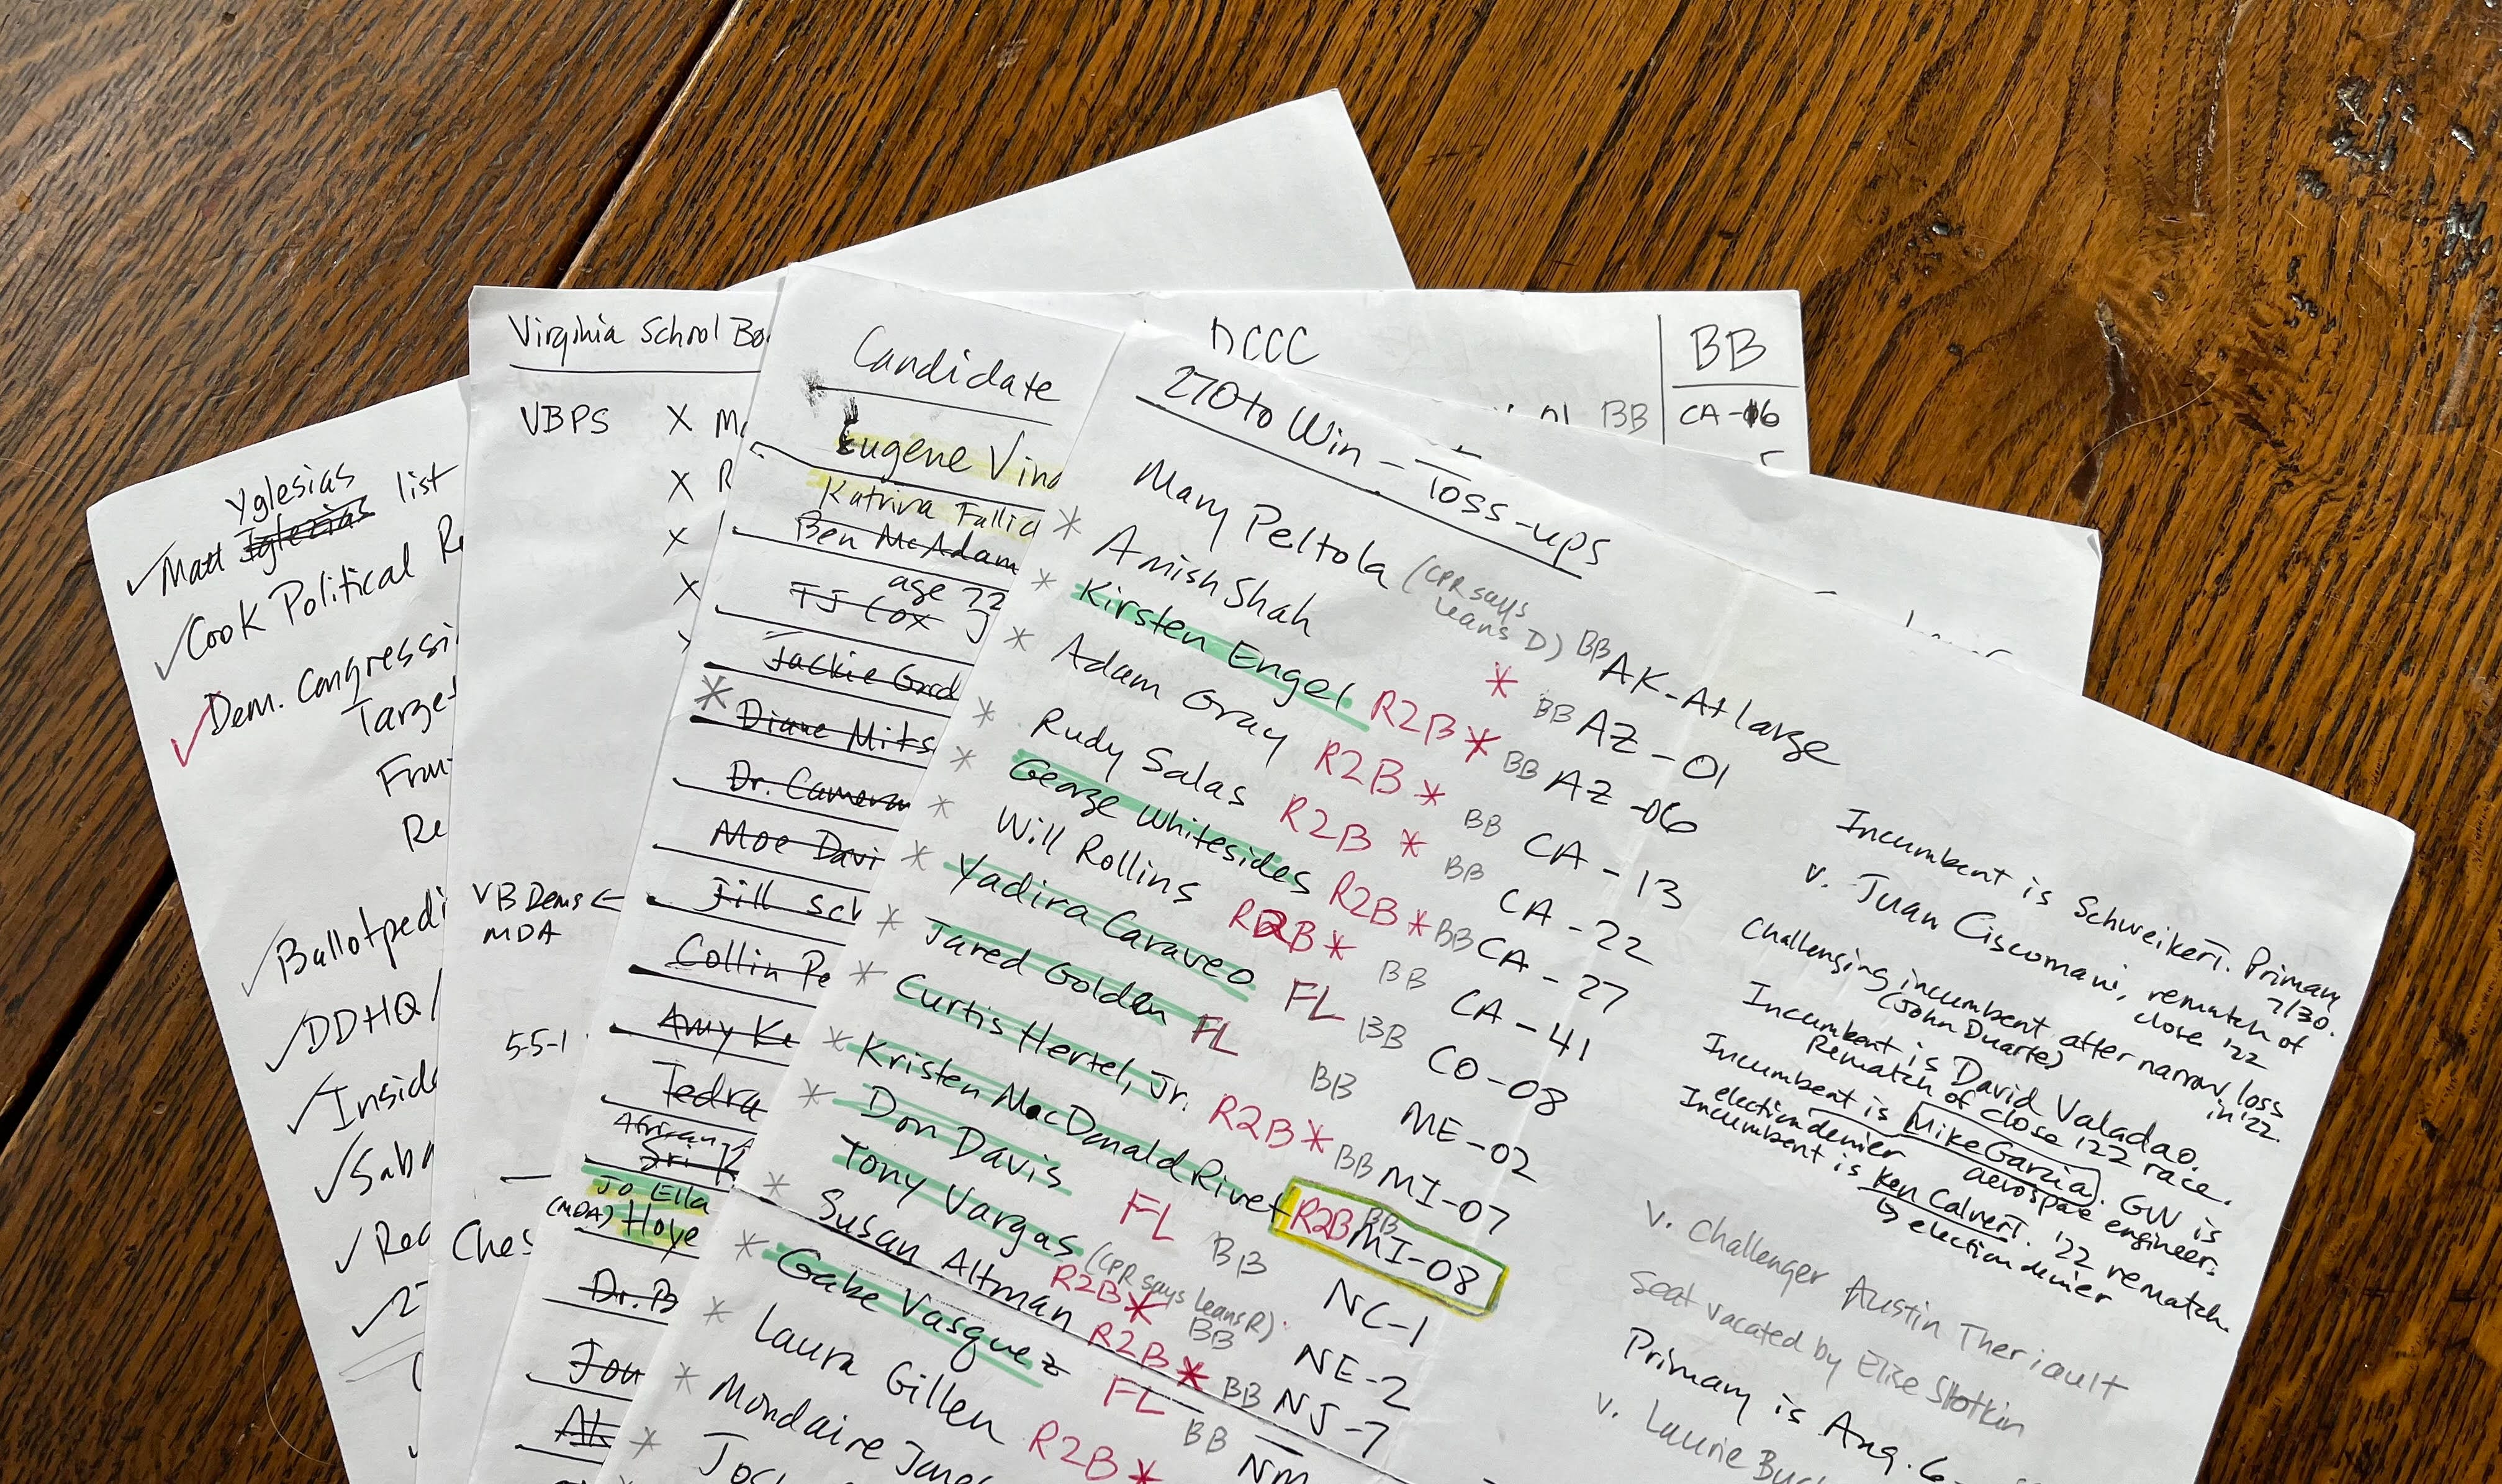 Yglesias
✓ Matt Iglezias list
✓ Cook Political R
✓ Dem. Congressi
Target
Fron
Re
✓ Ballotpedi
✓ DDHQ/
✓ Inside
✓ Saba
✓ Rea
✓ 27
Virginia School Bo
VBPS X M
X R
X
X
VB Dems ←
MDA
55-1
Ches
Candidate
Eugene Vind
Katrina Fallic
Ben McAdam
age 22
TJ Cox J
Jackie Gord
* Diane Mits
Dr. Cameron
Moe Davi
Jill Sch
Collin Pe
Amy Ke
Tedra
African-A
Sri K
Jo Ella
(MDA) Hoye
Dr. B
Jon
DCCC
BB
BB CA-16
270 to Win - Toss-ups
Mary Peltola (CPR says leans D) BB AK-At large
* Amish Shah * BB AZ-01
* Kirsten Engel R2B * BB AZ-06
* Adam Gray R2B * BB CA-13
* Rudy Salas R2B * BB CA-22
* George Whitesides R2B * BB CA-27
* Will Rollins R2B * BB CA-41
* Yadira Caraveo FL BB CO-08
* Jared Golden FL BB ME-02
* Curtis Hertel, Jr. R2B * BB MI-07
* Kristen MacDonald Rivet R2B BB MI-08
* Don Davis FL BB NC-1
Tony Vargas (CPR says leans R) R2B * BB NE-2
* Susan Altman R2B * BB NJ-7
* Gabe Vasquez FL BB NM
* Laura Gillen R2B *
* Mondaire Jones
*
Incumbent is Schweikert. Primary 7/30.
v. Juan Ciscomani, rematch of close '22
Challenging incumbent after narrow loss in '22.
(John Duarte)
Incumbent is David Valadao.
Rematch of close '22 race.
Incumbent is Mike Garzia. GW is
election denier aerospace engineer.
Incumbent is Ken Calvert. '22 rematch.
↳ election denier
v. Challenger Austin Theriault
Seat vacated by Elise Slotkin
Primary is Aug. 6
v. Laurie Buck